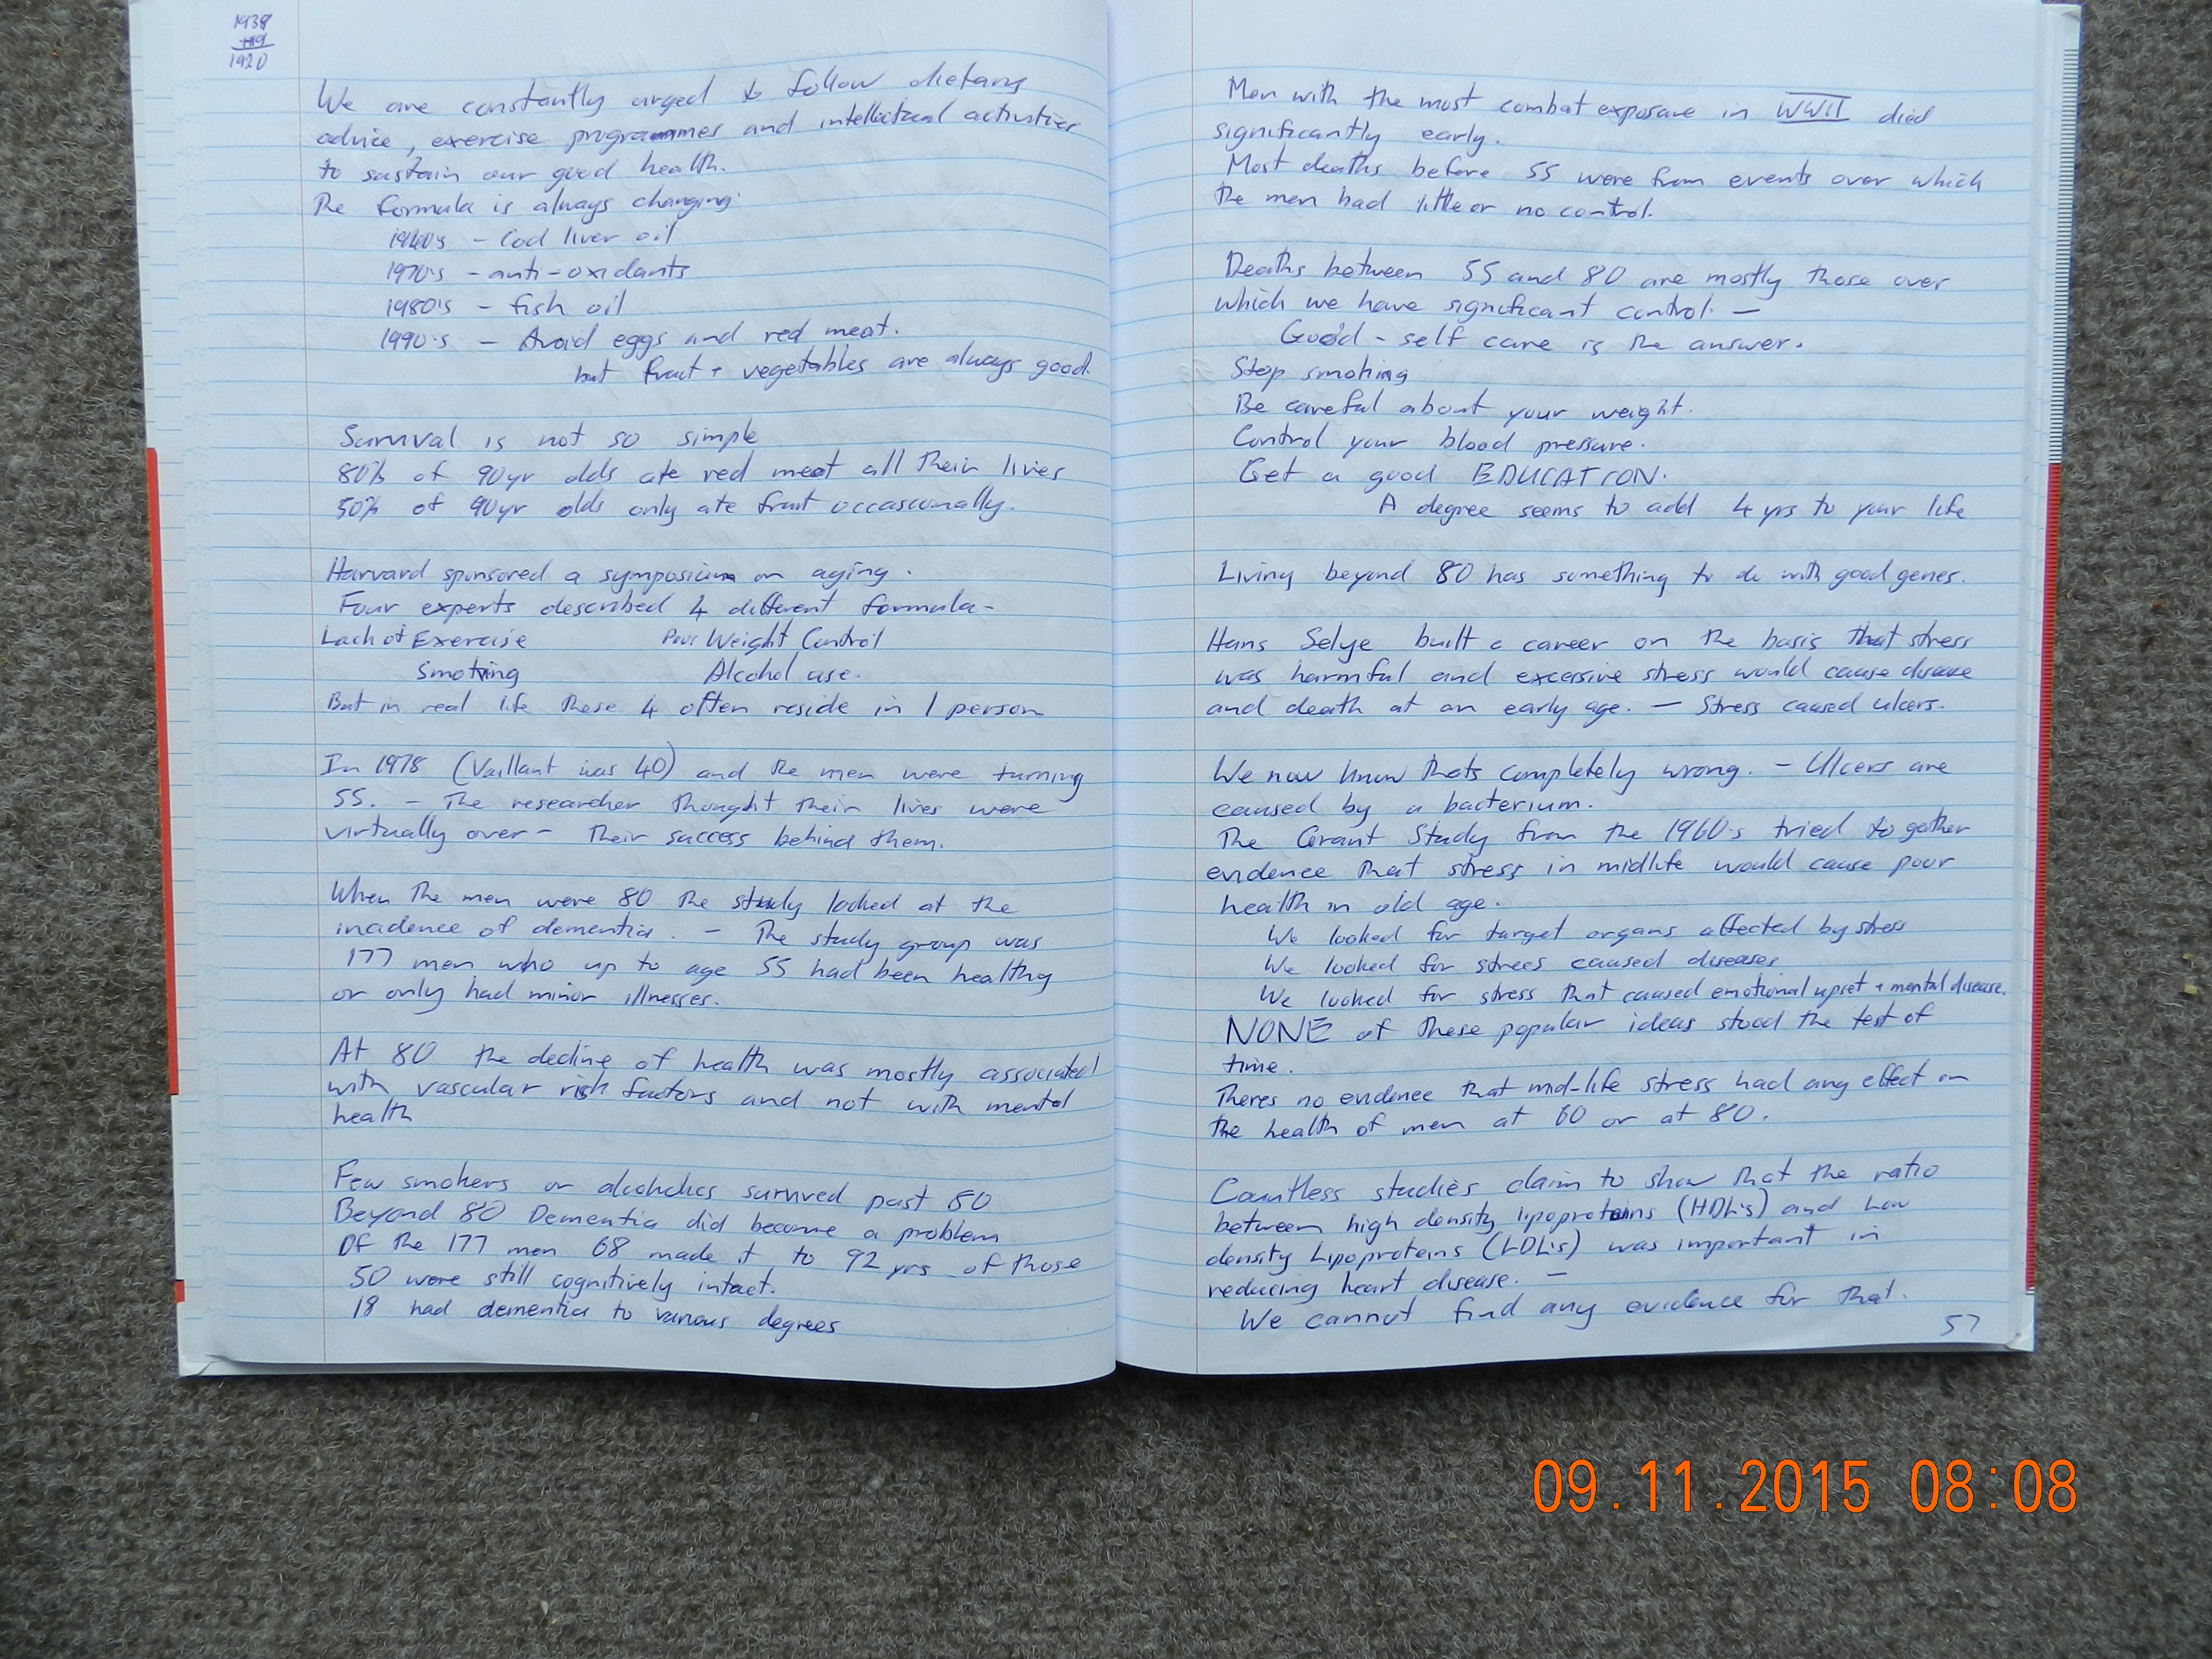 1938
119
1920
We are constantly urged to follow dietary
advice, exercise programmes and intellectual activities
to sustain our good health.
The formula is always changing.
1940's - Cod liver oil
1970's - anti-oxidants
1980's - fish oil
1990's - Avoid eggs and red meat.
but fruit + vegetables are always good.
Survival is not so simple
80% of 90yr olds ate red meat all their lives
50% of 90yr olds only ate fruit occassionally.
Harvard sponsored a symposium on aging.
Four experts described 4 different formula-
Lack of Exercise Poor Weight Control
Smoking Alcohol use.
But in real life these 4 often reside in 1 person
In 1978 (Vaillant was 40) and the men were turning
55. - The researcher thought their lives were
virtually over - Their success behind them.
When the men were 80 the study looked at the
incidence of dementia. - The study group was
177 men who up to age 55 had been healthy
or only had minor illnesses.
At 80 the decline of health was mostly associated
with vascular risk factors and not with mental
health
Few smokers or alcoholics survived past 80
Beyond 80 Dementia did become a problem
Of the 177 men 68 made it to 92 yrs of those
50 were still cognitively intact.
18 had dementia to various degrees
Men with the most combat exposure in WWII died
significantly early.
Most deaths before 55 were from events over which
the men had little or no control.
Deaths between 55 and 80 are mostly those over
which we have significant control. -
Good - self care is the answer.
Stop smoking
Be careful about your weight.
Control your blood pressure.
Get a good EDUCATION.
A degree seems to add 4 yrs to your life
Living beyond 80 has something to do with good genes.
Hans Selye built a career on the basis that stress
was harmful and excessive stress would cause disease
and death at an early age. - Stress caused ulcers.
We now know thats completely wrong. - Ulcers are
caused by a bacterium.
The Grant Study from the 1960's tried to gather
evidence that stress in midlife would cause poor
health in old age.
We looked for target organs affected by stress
We looked for strees caused diseases
We looked for stress that caused emotional upset + mental disease.
NONE of these popular ideas stood the test of
time.
Theres no evidence that mid-life stress had any effect on
the health of men at 60 or at 80.
Countless studies claim to show that the ratio
between high density lipoproteins (HDL's) and Low
density Lipoproteins (LDL's) was important in
reducing heart disease. -
We cannot find any evidence for that.
57
09.11.2015 08:08